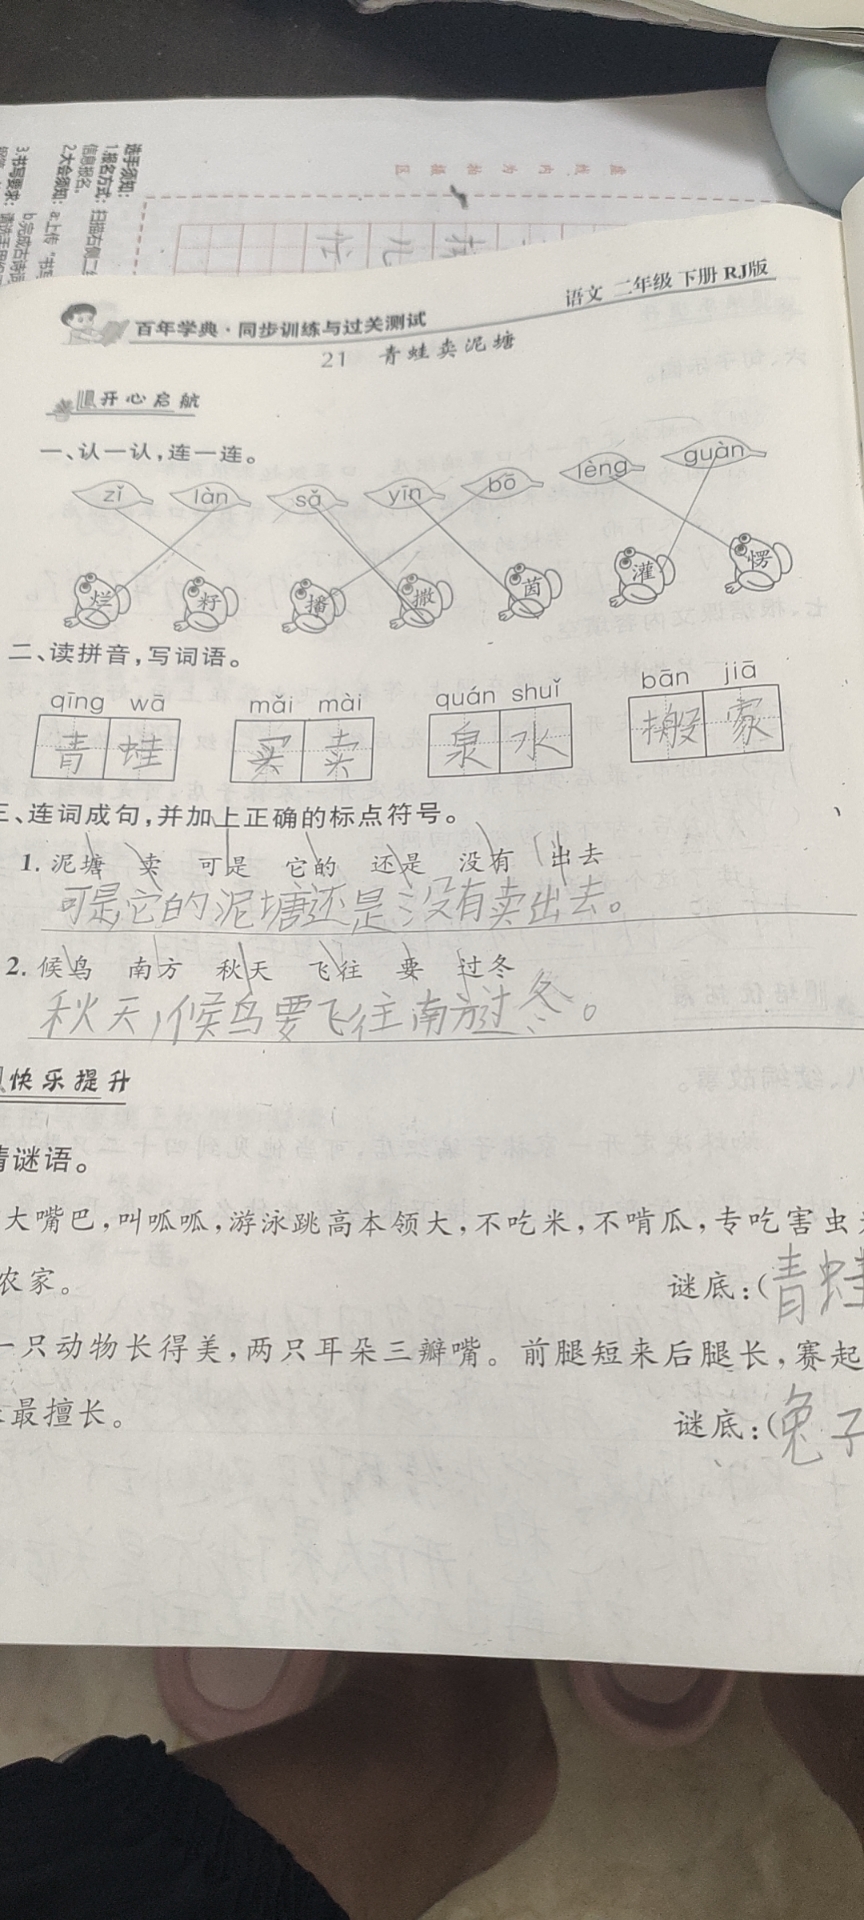 选手须知：
1.报名方式：扫描右侧二维
信息报名。
2.大会须知：a.上传“书写
b.完成古诗
3.书写要求：
虚线内为拍摄区
语文 二年级 下册 RJ版
百年学典·同步训练与过关测试
21 青蛙卖泥塘
开心启航
一、认一认，连一连。
zǐ làn sǎ yīn bō lèng guàn
烂 籽 播 撒 茵 灌 愣
二、读拼音，写词语。
qīng wā mǎi mài quán shuǐ bān jiā
青蛙 买卖 泉水 搬家
三、连词成句，并加上正确的标点符号。
1. 泥塘 卖 可是 它的 还是 没有 出去
可是它的泥塘还是没有卖出去。
2. 候鸟 南方 秋天 飞往 要 过冬
秋天，候鸟要飞往南方过冬。
快乐提升
猜谜语。
大嘴巴，叫呱呱，游泳跳高本领大，不吃米，不啃瓜，专吃害虫
农家。 谜底：(青蛙
一只动物长得美，两只耳朵三瓣嘴。前腿短来后腿长，赛起
最擅长。 谜底：(兔子